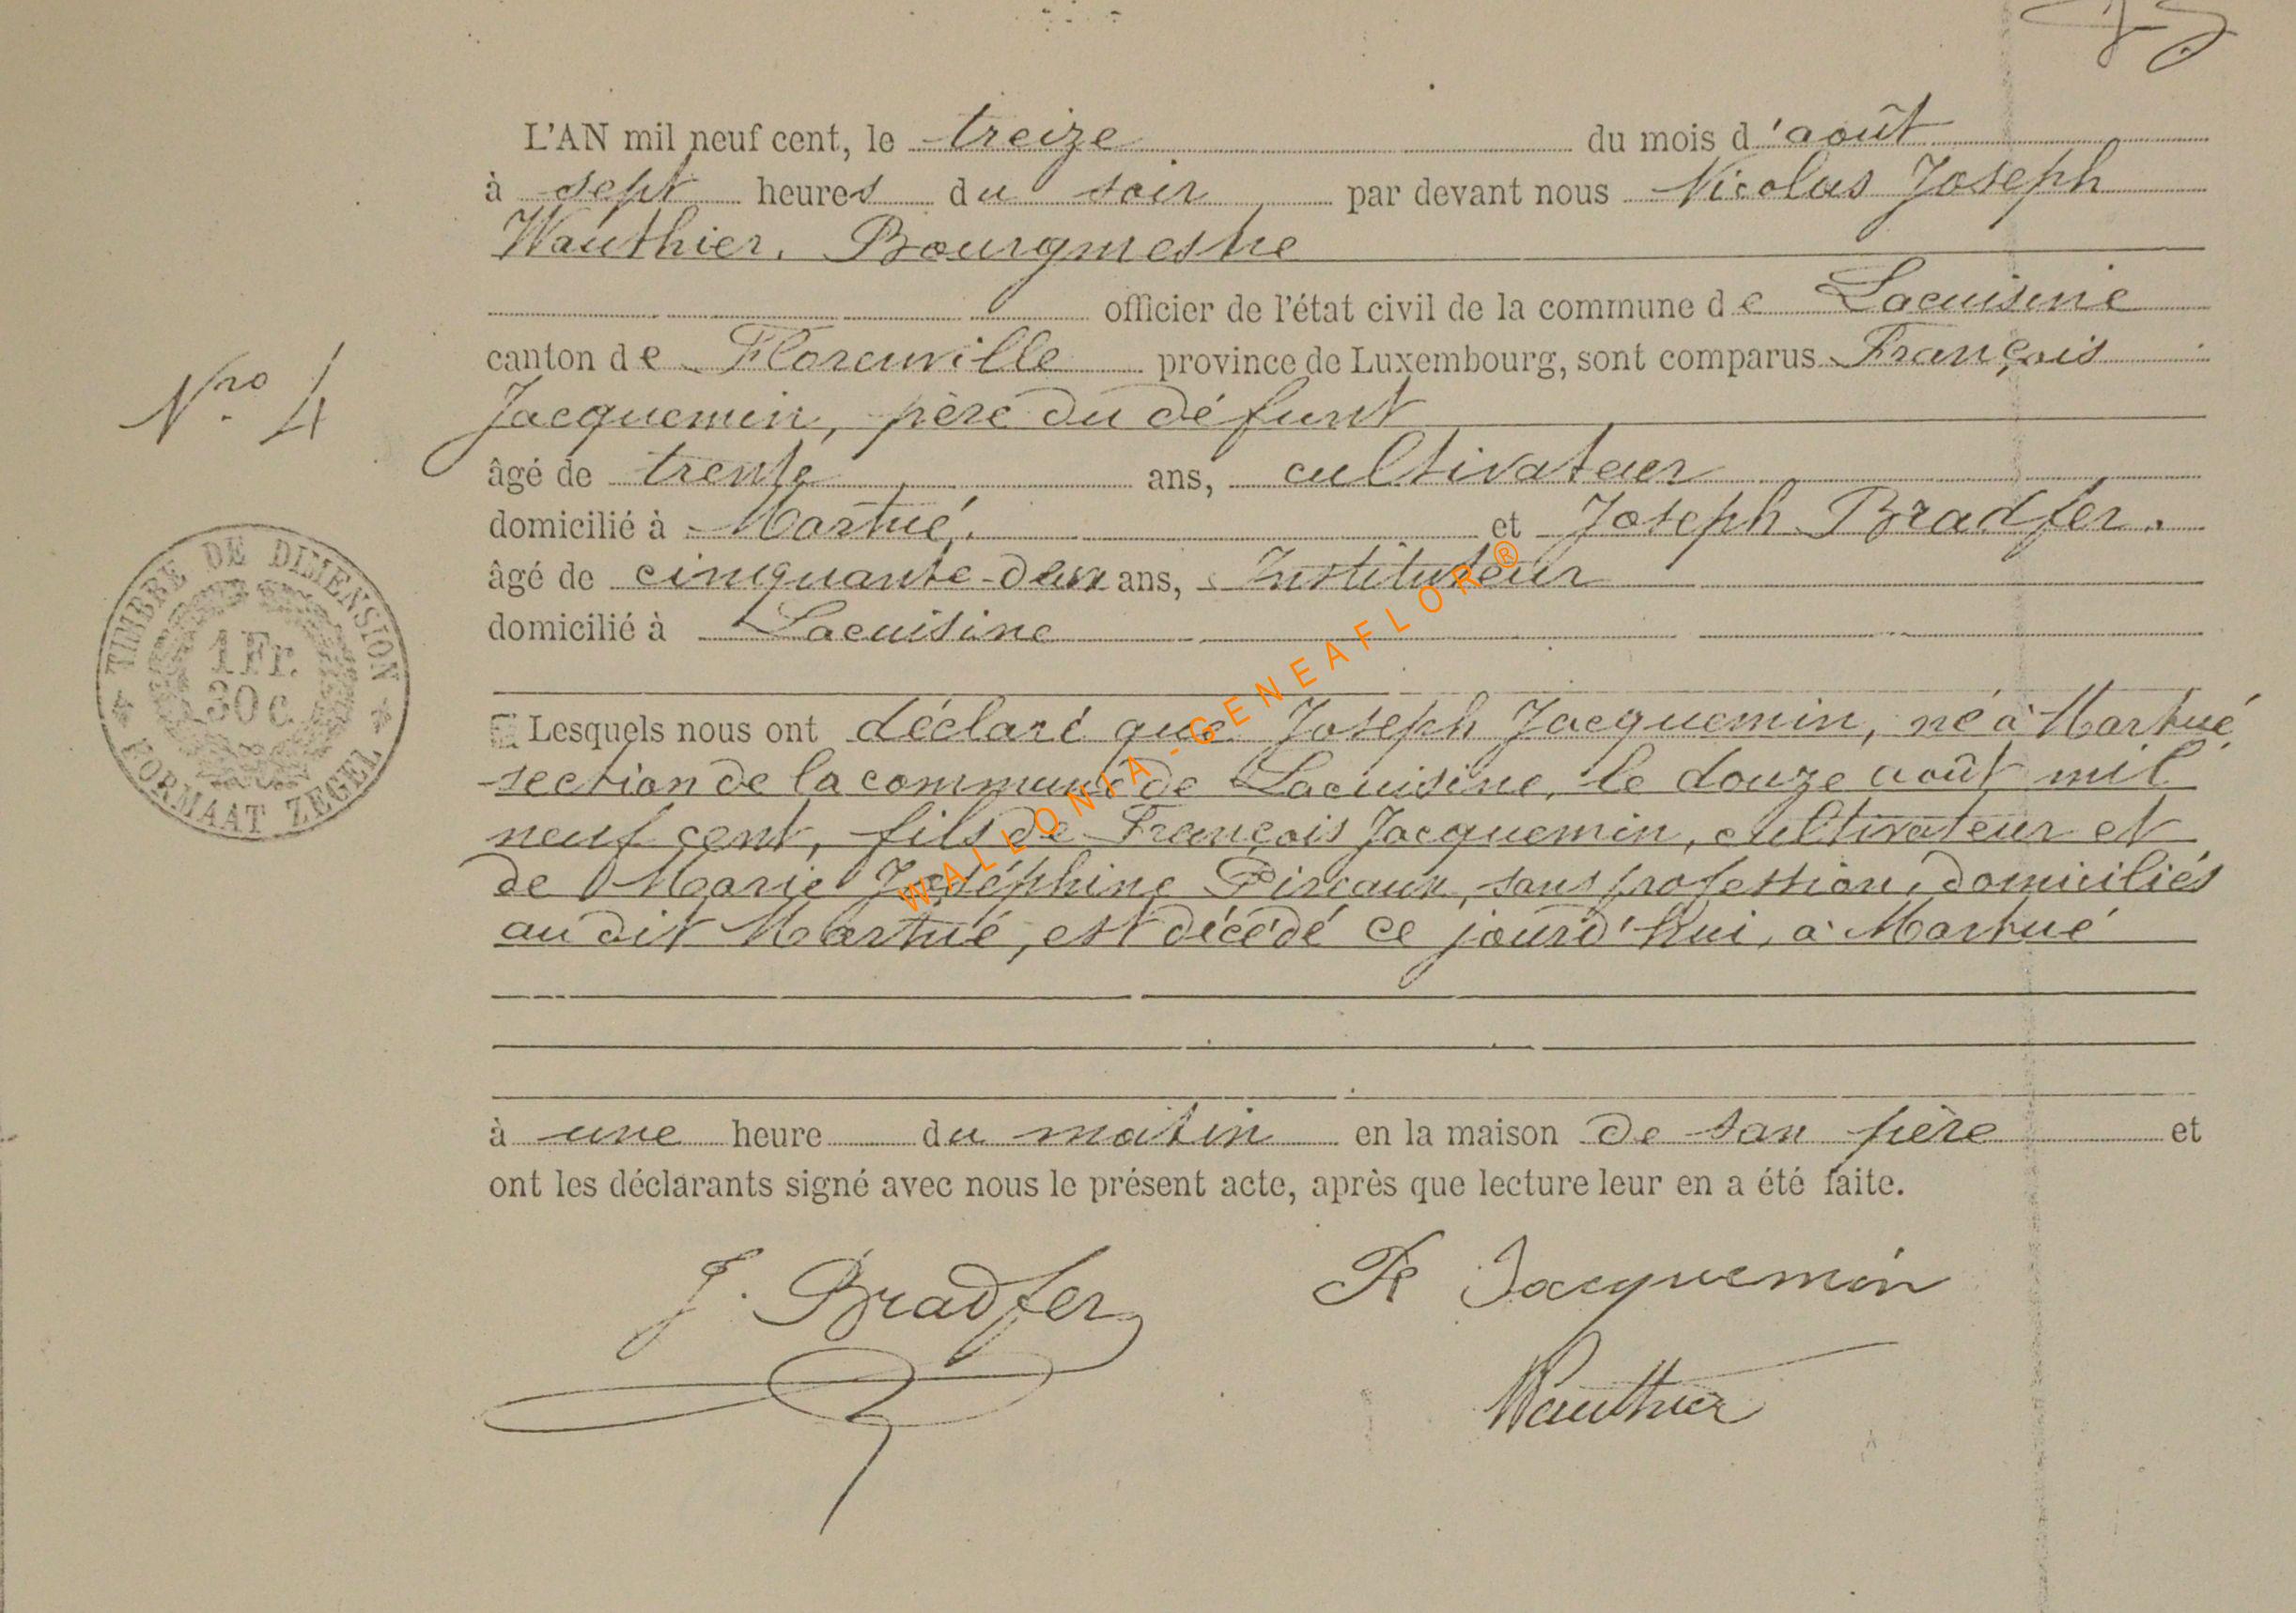 L'AN mil neuf cent, le treize du mois d'août
à sept heures du soir par devant nous Nicolas Joseph
Wauthier, Bourgmestre
officier de l'état civil de la commune de Lacuisine
canton de Florenville province de Luxembourg, sont comparus François
Jacquemin, père du défunt
Nro 4
âgé de trente ans, cultivateur
domicilié à Martué. et Joseph Bradfer.
âgé de cinquante-deux ans, Instituteur
domicilié à Lacuisine
TIMBRE DE DIMENSION
1 Fr.
30 c.
FORMAAT ZEGEL
Lesquels nous ont déclaré que Joseph Jacquemin, né à Martué
section de la commune de Lacuisine, le douze août mil
neuf cent, fils de François Jacquemin, cultivateur et
de Marie Joséphine Pireaux, sans profession, domiciliés
au dit Martué, est décédé ce jourd'hui, à Martué
à une heure du matin en la maison de son père et
ont les déclarants signé avec nous le présent acte, après que lecture leur en a été faite.
J. Bradfer Fs Jacquemin
Wauthier
WALLONIA-GENEAFLOR®